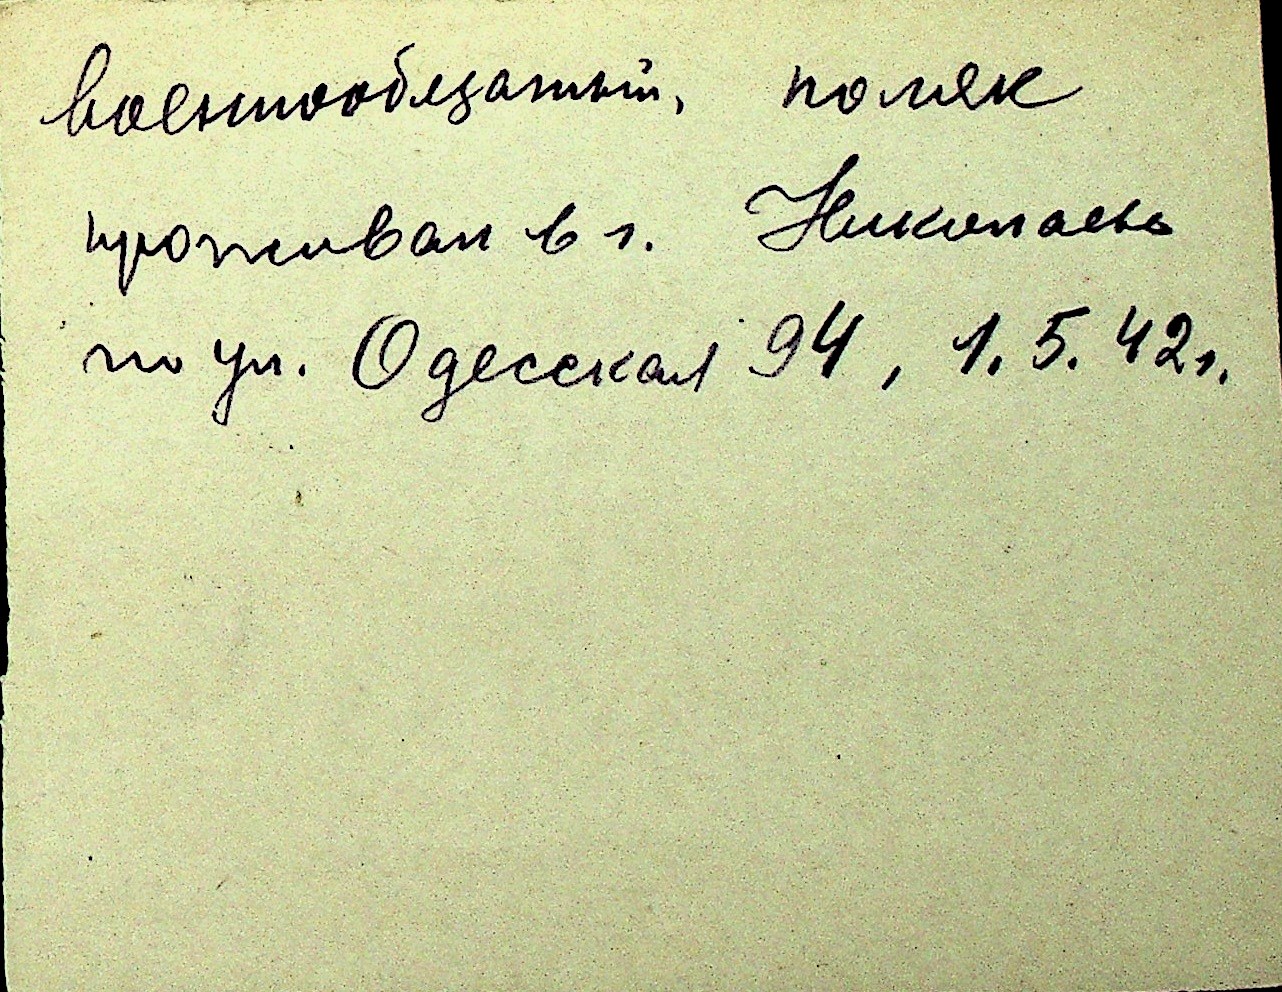 военнообязаный, поляк
проживал в г. Николаевъ
по ул. Одесская 94, 1.5.42г.